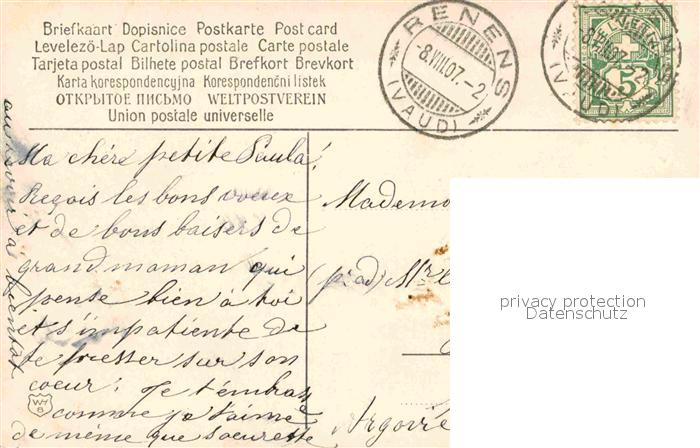 Briefkaart Dopisnice Postkarte Post card
Levelező-Lap Cartolina postale Carte postale
Tarjeta postal Bilhete postal Brefkort Brevkort
Karta korespondencyjna Korespondenční listek
ОТКРЫТОЕ ПИСЬМО WELTPOSTVEREIN
Union postale universelle
RENENS
-8.VIII.07.-2
(VAUD)
5
Ma chére petite Paula!
Reçois les bons voeux
et de bons baisers de
grandmaman qui
pense bien à toi
et s'impatiente de
te presser sur son
coeur. Je t'embrasse
comme je t'aime
de même que soeurette
au revoir à bientôt
Mademo
(p. ad) Mr
Argovie
privacy protection
Datenschutz